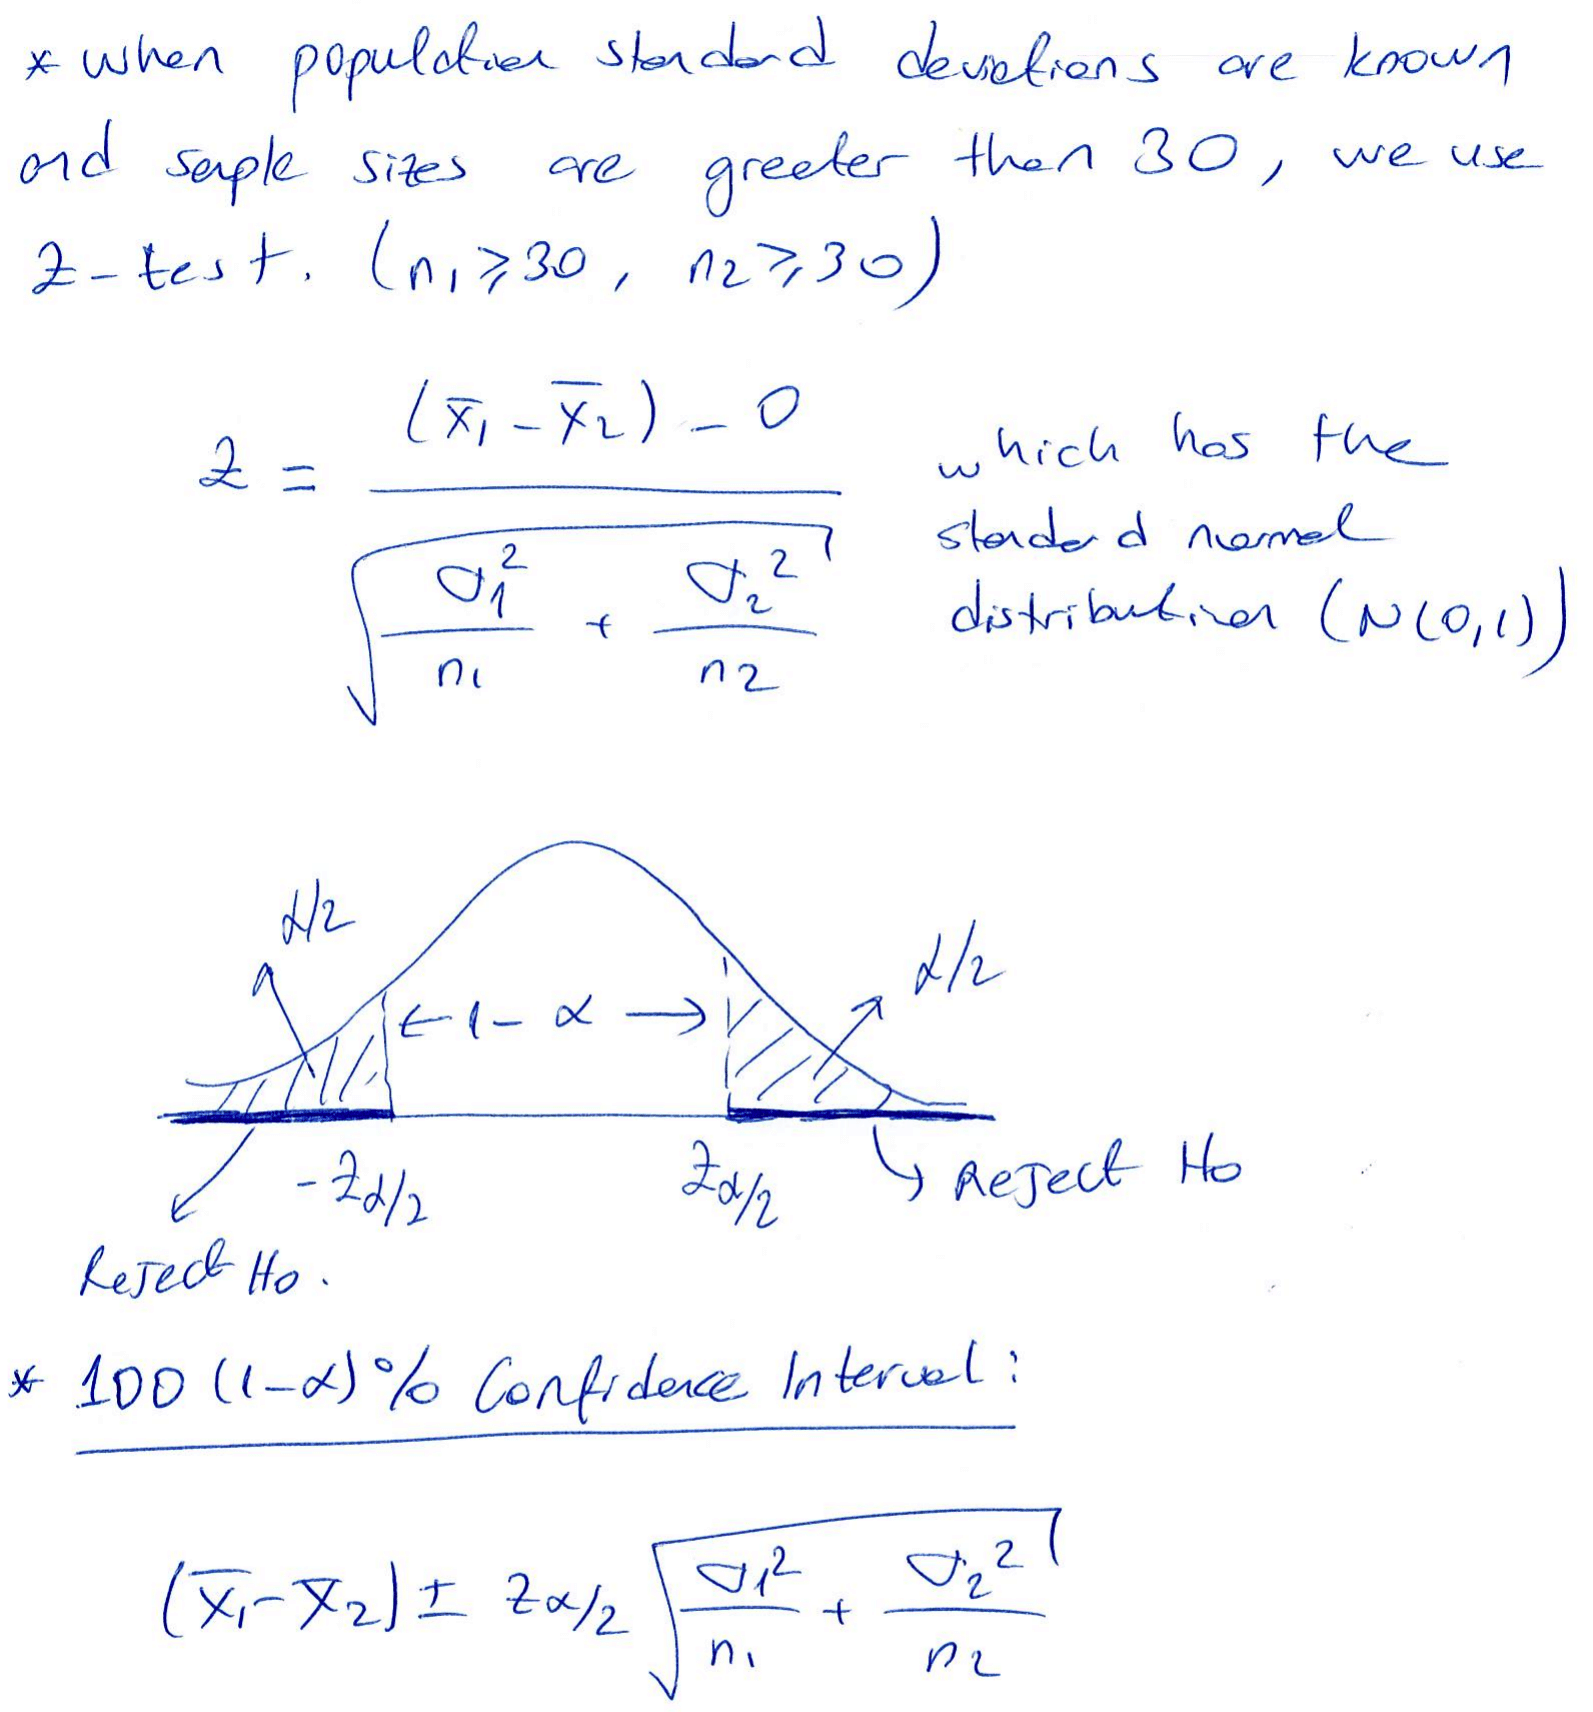 * when population standard deviations are known
and sample sizes are greater than 30, we use
z-test. (n₁ ⩾ 30, n₂ ⩾ 30)
z = ((x̄₁ - x̄₂) - 0) / √(σ₁²/n₁ + σ₂²/n₂) which has the
standard normal
distribution (N(0,1))
α/2
α/2
← 1 - α →
-zα/2 zα/2 Reject H₀
Reject H₀.
* 100 (1-α)% Confidence Interval:
(x̄₁ - x̄₂) ± zα/2 √(σ₁²/n₁ + σ₂²/n₂)